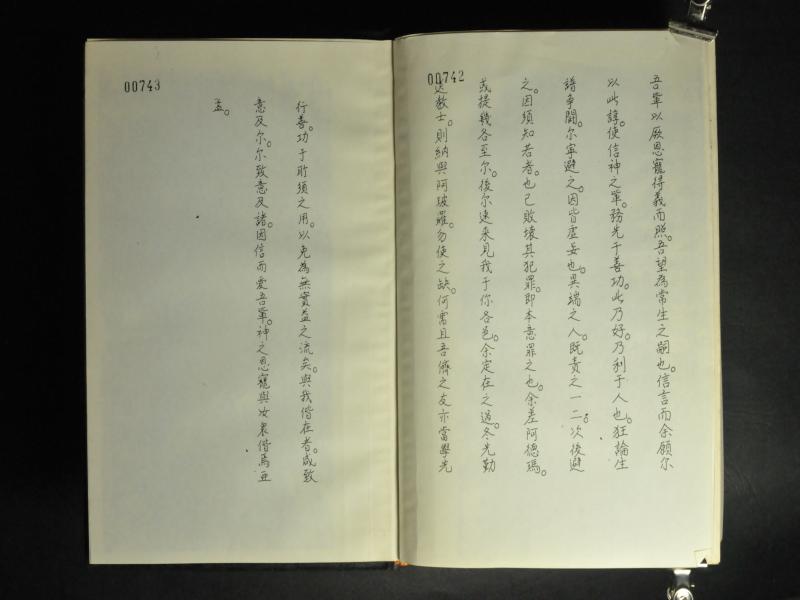 00742
吾軰以厥恩寵得義而照吾望為常生之嗣也。信言而余願尔
以此諄。使信神之軰。務先于善功。此乃好。乃利于人也。狂論生
譜爭鬪。尔寧避之。因皆虛妄也。異端之人。既責之一二。次後避
之。因須知若者。也已敗壞其犯罪。即本意罪之也。余差阿德瑪。
或提幾各至尔。後尔速來見我于你各邑。余定在之過。冬先勤
送教士。則納與阿玻羅。勿使之缺。何需且吾儕之友亦當學先
00743
行善。功于所須之用。以免為無實益之流矣。與我偕在者。咸致
意及尔。尔致意及諸。因信而愛吾軰。神之恩寵與汝衆偕焉亞
孟。